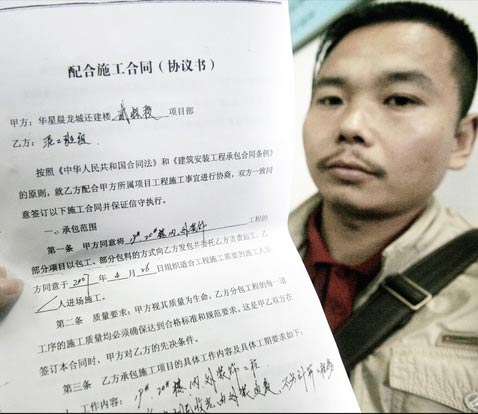 配合施工合同（协议书）
甲方：华星晨龙城还建楼 项目部
乙方：
按照《中华人民共和国合同法》和《建筑安装工程承包合同条例》
的原则，就乙方配合甲方所属项目工程施工事宜进行协商，双方一致同
意签订以下施工合同并保证信守执行。
一、承包范围
第一条 甲方同意将 19#、20#楼内、外装饰 工程的
部分项目以包工、部分包料的方式向乙方发包并委托乙方负责施工，乙
方同意于 2007 年 4 月 26 日组织适合工程施工需要的施工人员
人进场施工。
第二条 质量要求：甲方视其质量为生命，乙方分包工程的每一道
工序的施工质量均必须确保达到合格标准和规范要求，这是甲乙双方在
签本合同时，甲方对乙方的先决条件。
第三条 乙方承发施工项目的具体工作内容及具体工期要求如下：
工作内容：19#、20#楼内、外装饰工程